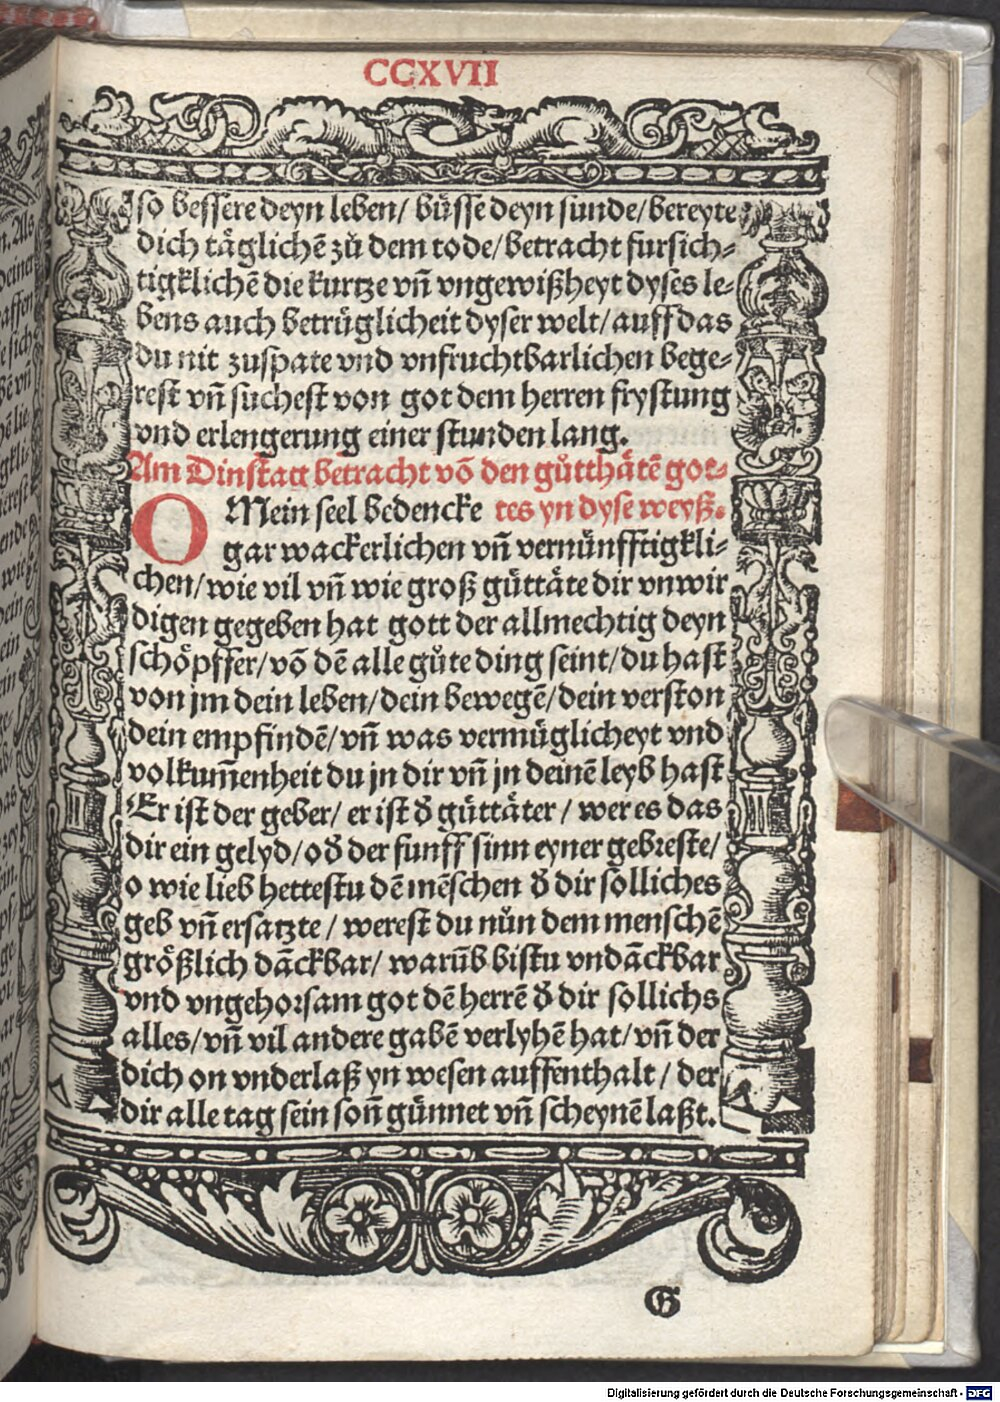 CCXVII
so bessere deyn leben/ bůsse deyn sunde/ bereyte
dich täglichē zů dem tode/ betracht fursich-
tigklichē die kurtze vñ vngewißheyt dyses le-
bens auch betrüglicheit dyser welt/ auff das
du nit zuspate vnd vnfruchtbarlichen bege-
rest vñ suchest von got dem herren frystung
vnd erlengerung einer stunden lang.
Am Dinstag betracht vō den gůtthätē got-
tes yn dyse weyß.
O Mein seel bedencke
gar wackerlichen vñ vernünfftigkli-
chen/ wie vil vñ wie groß güttäte dir vnwir
digen gegeben hat gott der allmechtig deyn
schöpffer/ vō dē alle gůte ding seint/ du hast
von jm dein leben/ dein bewegē/ dein verston
dein empfindē/ vñ was vermüglicheyt vnd
volkum̄enheit du jn dir vñ jn deinē leyb hast
Er ist der geber/ er ist d̄ güttäter/ wer es das
dir ein gelyd/ od̄ der funff sinn eyner gebreste/
o wie lieb hettestu dē mēschen d̄ dir solliches
geb vñ ersatzte/ werest du nůn dem menschē
größlich dāckbar/ warūb bistu vndāckbar
vnd vngehorsam got dē herrē d̄ dir sollichs
alles/ vñ vil andere gabē verlyhē hat/ vñ der
dich on vnderlaß yn wesen auffenthalt/ der
dir alle tag sein soñ günnet vñ scheynē laßt.
G
Digitalisierung gefördert durch die Deutsche Forschungsgemeinschaft - DFG